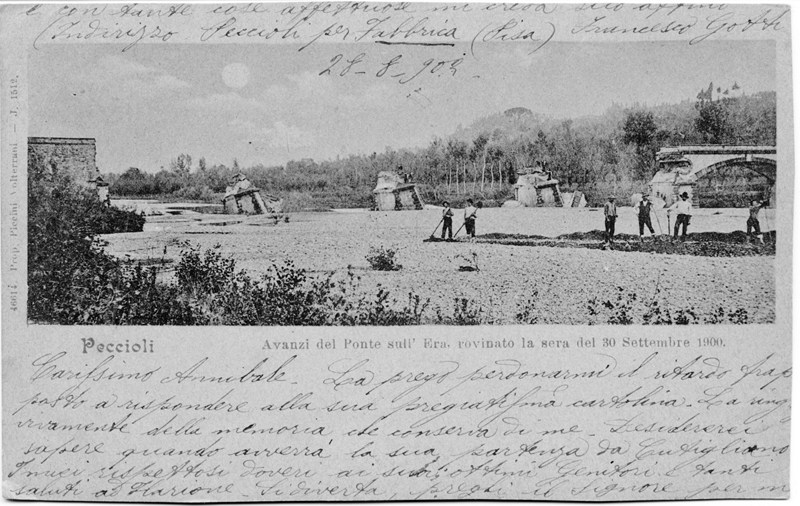 e con tante cose affettuose mi creda suo affmo
(Indirizzo Peccioli per Fabbrica (Pisa) Francesco Gotti
28-8-902
46614 Prop. Piccini Volterrani — J. 1512.
Peccioli
Avanzi del Ponte sull' Era, rovinato la sera del 30 Settembre 1900.
Carissimo Annibale. La prego perdonarmi il ritardo frap
posto a rispondere alla sua pregiatissma cartolina. La ring
vivamente della memoria che conserva di me. Desidererei
sapere quando avverrà la sua partenza da Cutigliano
I miei rispettosi doveri ai suoi ottimi Genitori e tanti
saluti ad Ilarione. Si diverta, preghi il Signore per m